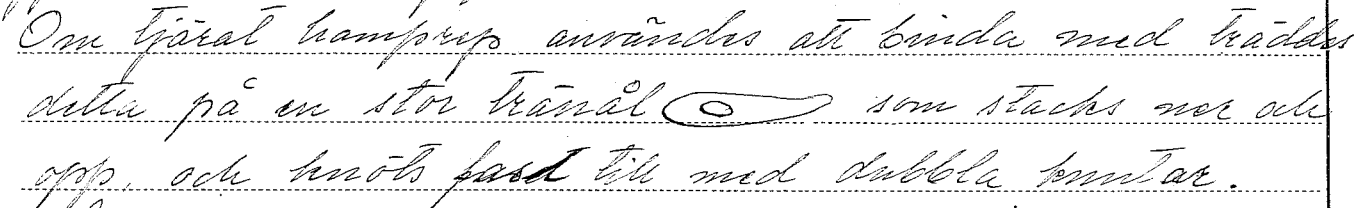 Om tjärat hamprep användes att binda med träddes
detta på en stor tränål som stacks ner och
opp, och knöts fast till med dubbla knutar.